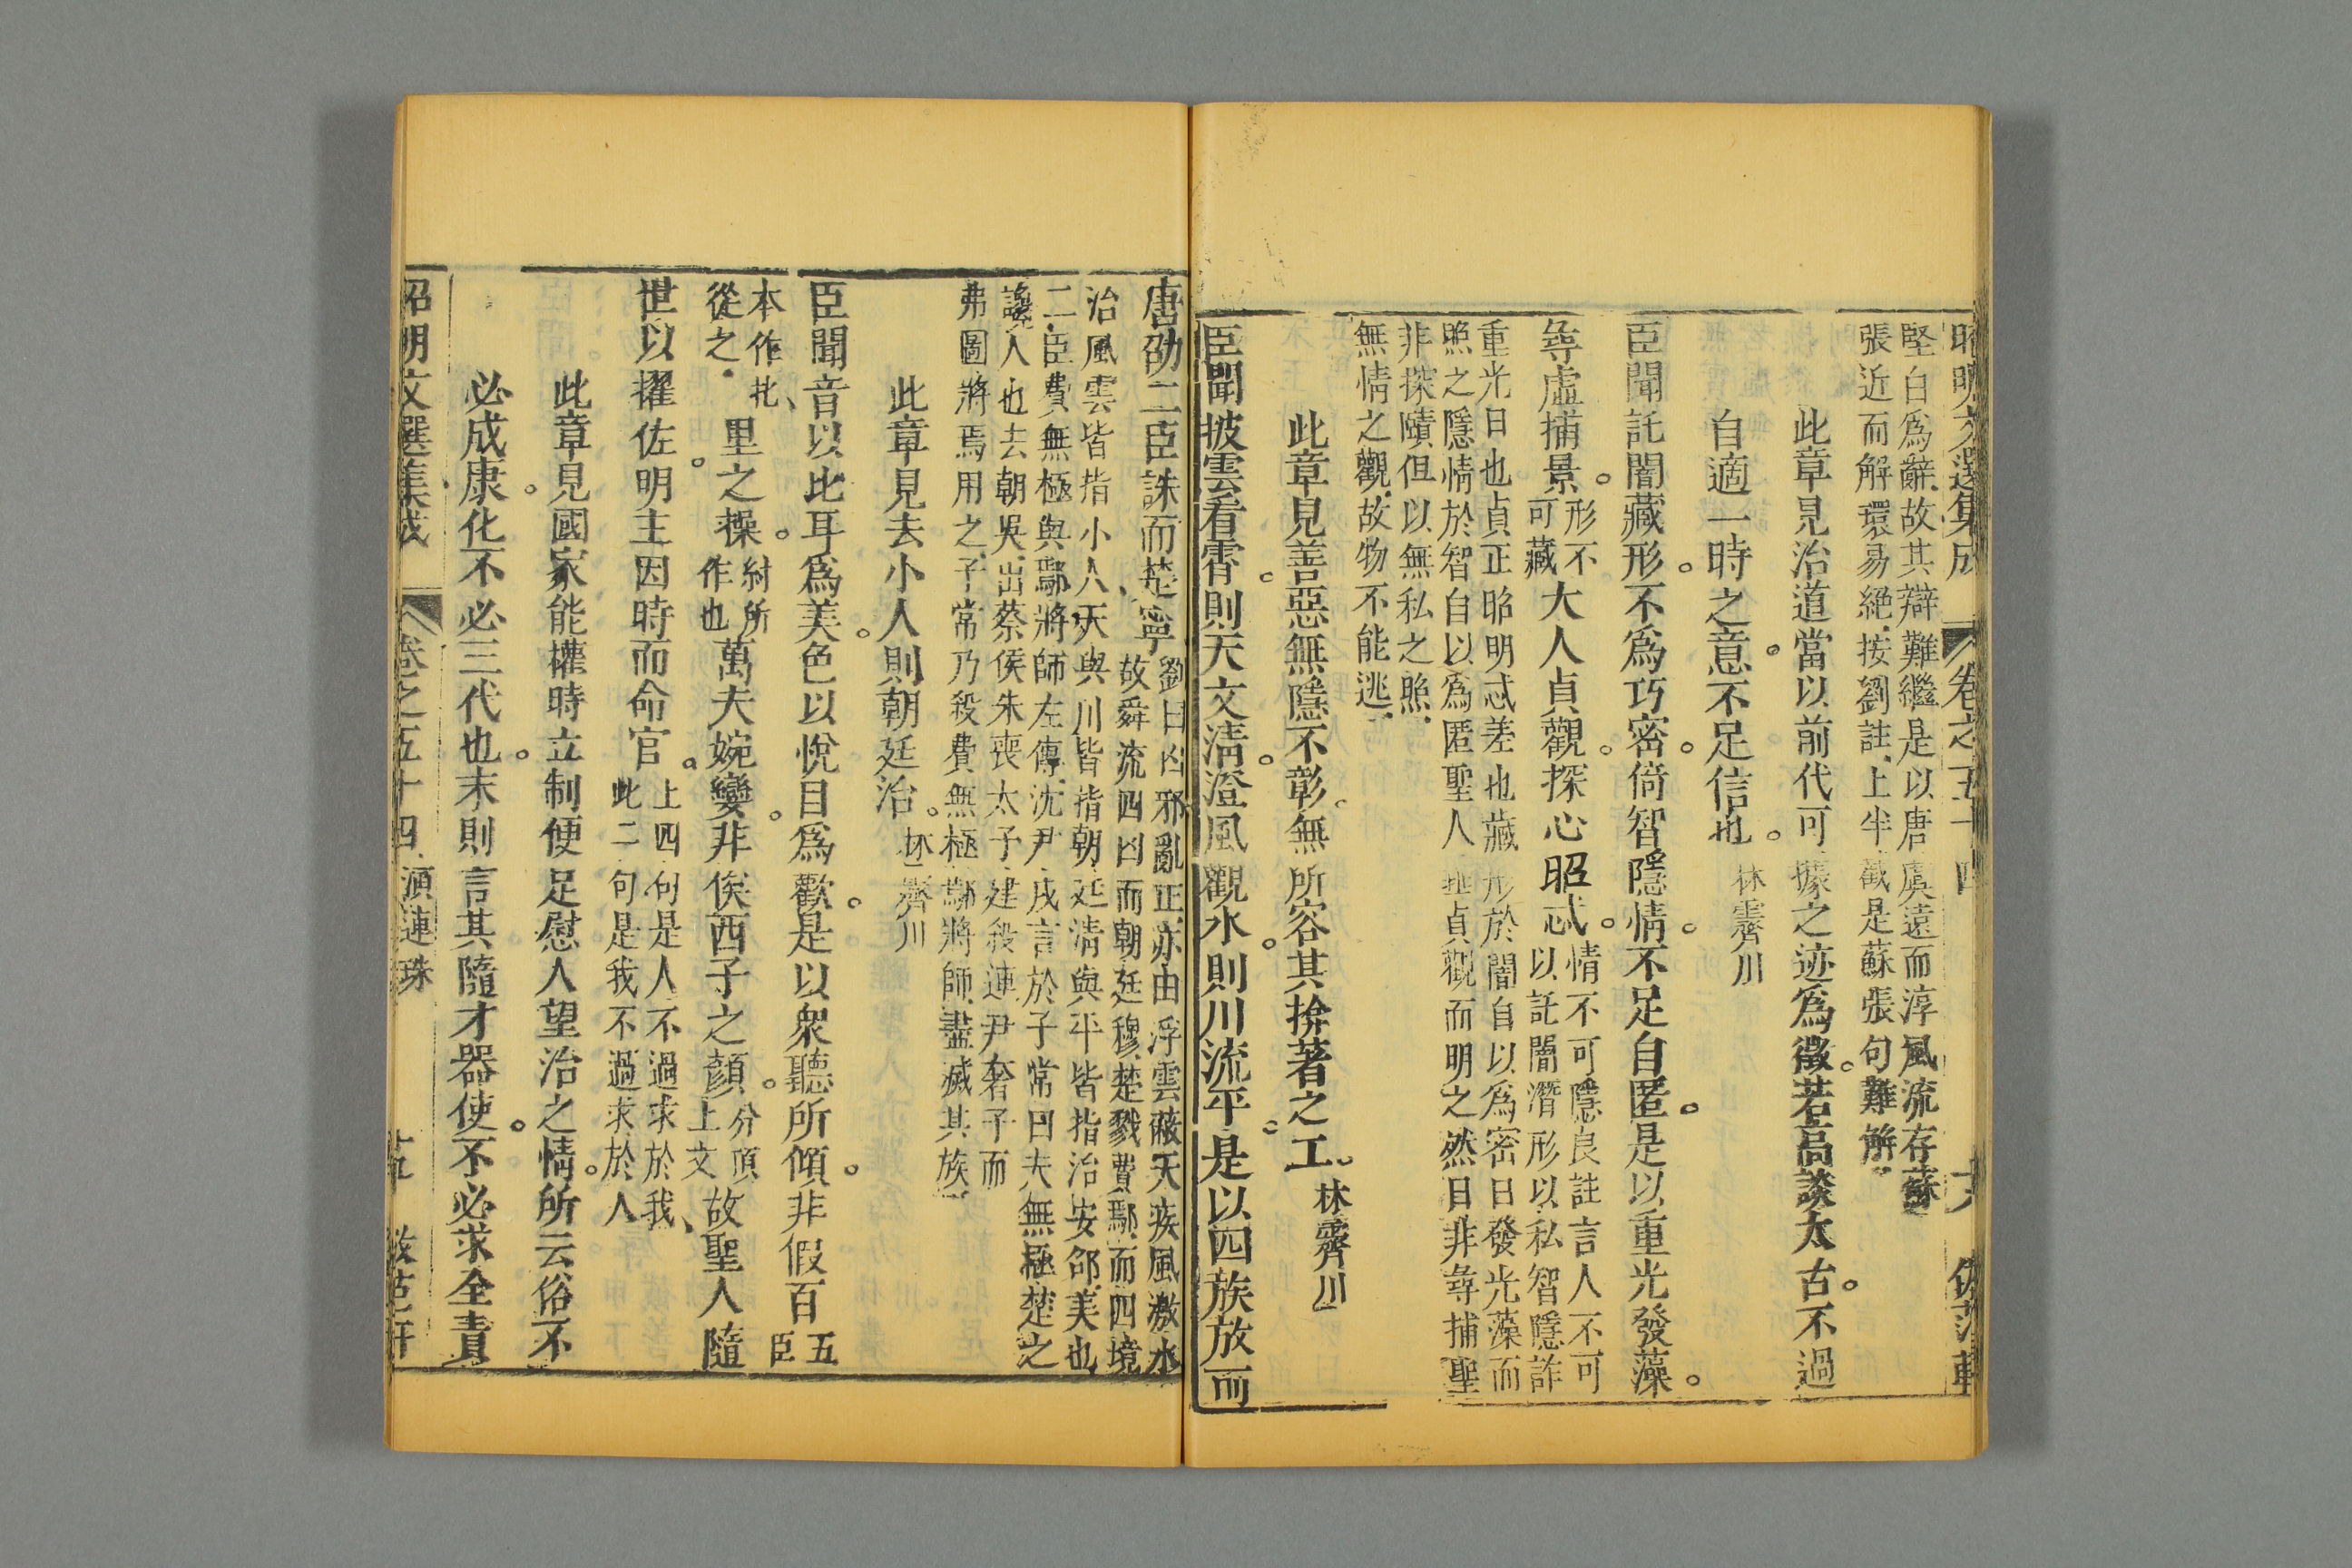 昭明文選集成 卷之五十四
堅白爲辭故其辯難繼是以唐虞遠而淳風流存蘇
張近而解環易絕按劉註上半截是蘇張句難解
此章見治道當以前代可據之迹爲徵若高談太古不過
自適一時之意不足信也 林霽川
臣聞託闇藏形不爲巧密倚智隱情不足自匿是以重光發藻
尋虛捕景 形不可藏 大人貞觀探心昭忒 情不可隱良註言人不可以託闇潛形以私智隱詐
重光日也貞正昭明忒差也藏形於闇自以爲密日發光藻而
照之隱情於智自以爲匿聖人垂貞觀而明之然日非尋捕聖
非探賾但以無私之照
無情之觀故物不能逃
此章見善惡無隱不彰無所容其揜著之工 林霽川
臣聞披雲看霄則天文清澄風觀水則川流平是以四族放而
唐劭二臣誅而楚寧 劉曰凶邪亂正亦由浮雲蔽天疾風激水故舜流四凶而朝廷穆楚戮費鄢而四境
治風雲皆指小人天與川皆指朝廷清與平皆指治安邵美也
二臣費無極與鄢將師左傳沈尹戌言於子常曰夫無極楚之
讒人也去朝吳出蔡侯朱喪太子建殺連尹奢子而
弗圖將焉用之子常乃殺費無極鄢將師盡滅其族
此章見去小人則朝廷治 林霽川
臣聞音以比耳爲美色以悅目爲歡是以衆聽所傾非假百 五臣
本作北從之 里之操 紂所作也 萬夫婉孌非俟西子之顏 分頂上文 故聖人隨
世以擢佐明主因時而命官 上四句是人不過求於我此二句是我不過求於人
此章見國家能權時立制便足慰人望治之情所云俗不
必成康化不必三代也末則言其隨才器使不必求全責
昭明文選集成 卷之五十四 演連珠